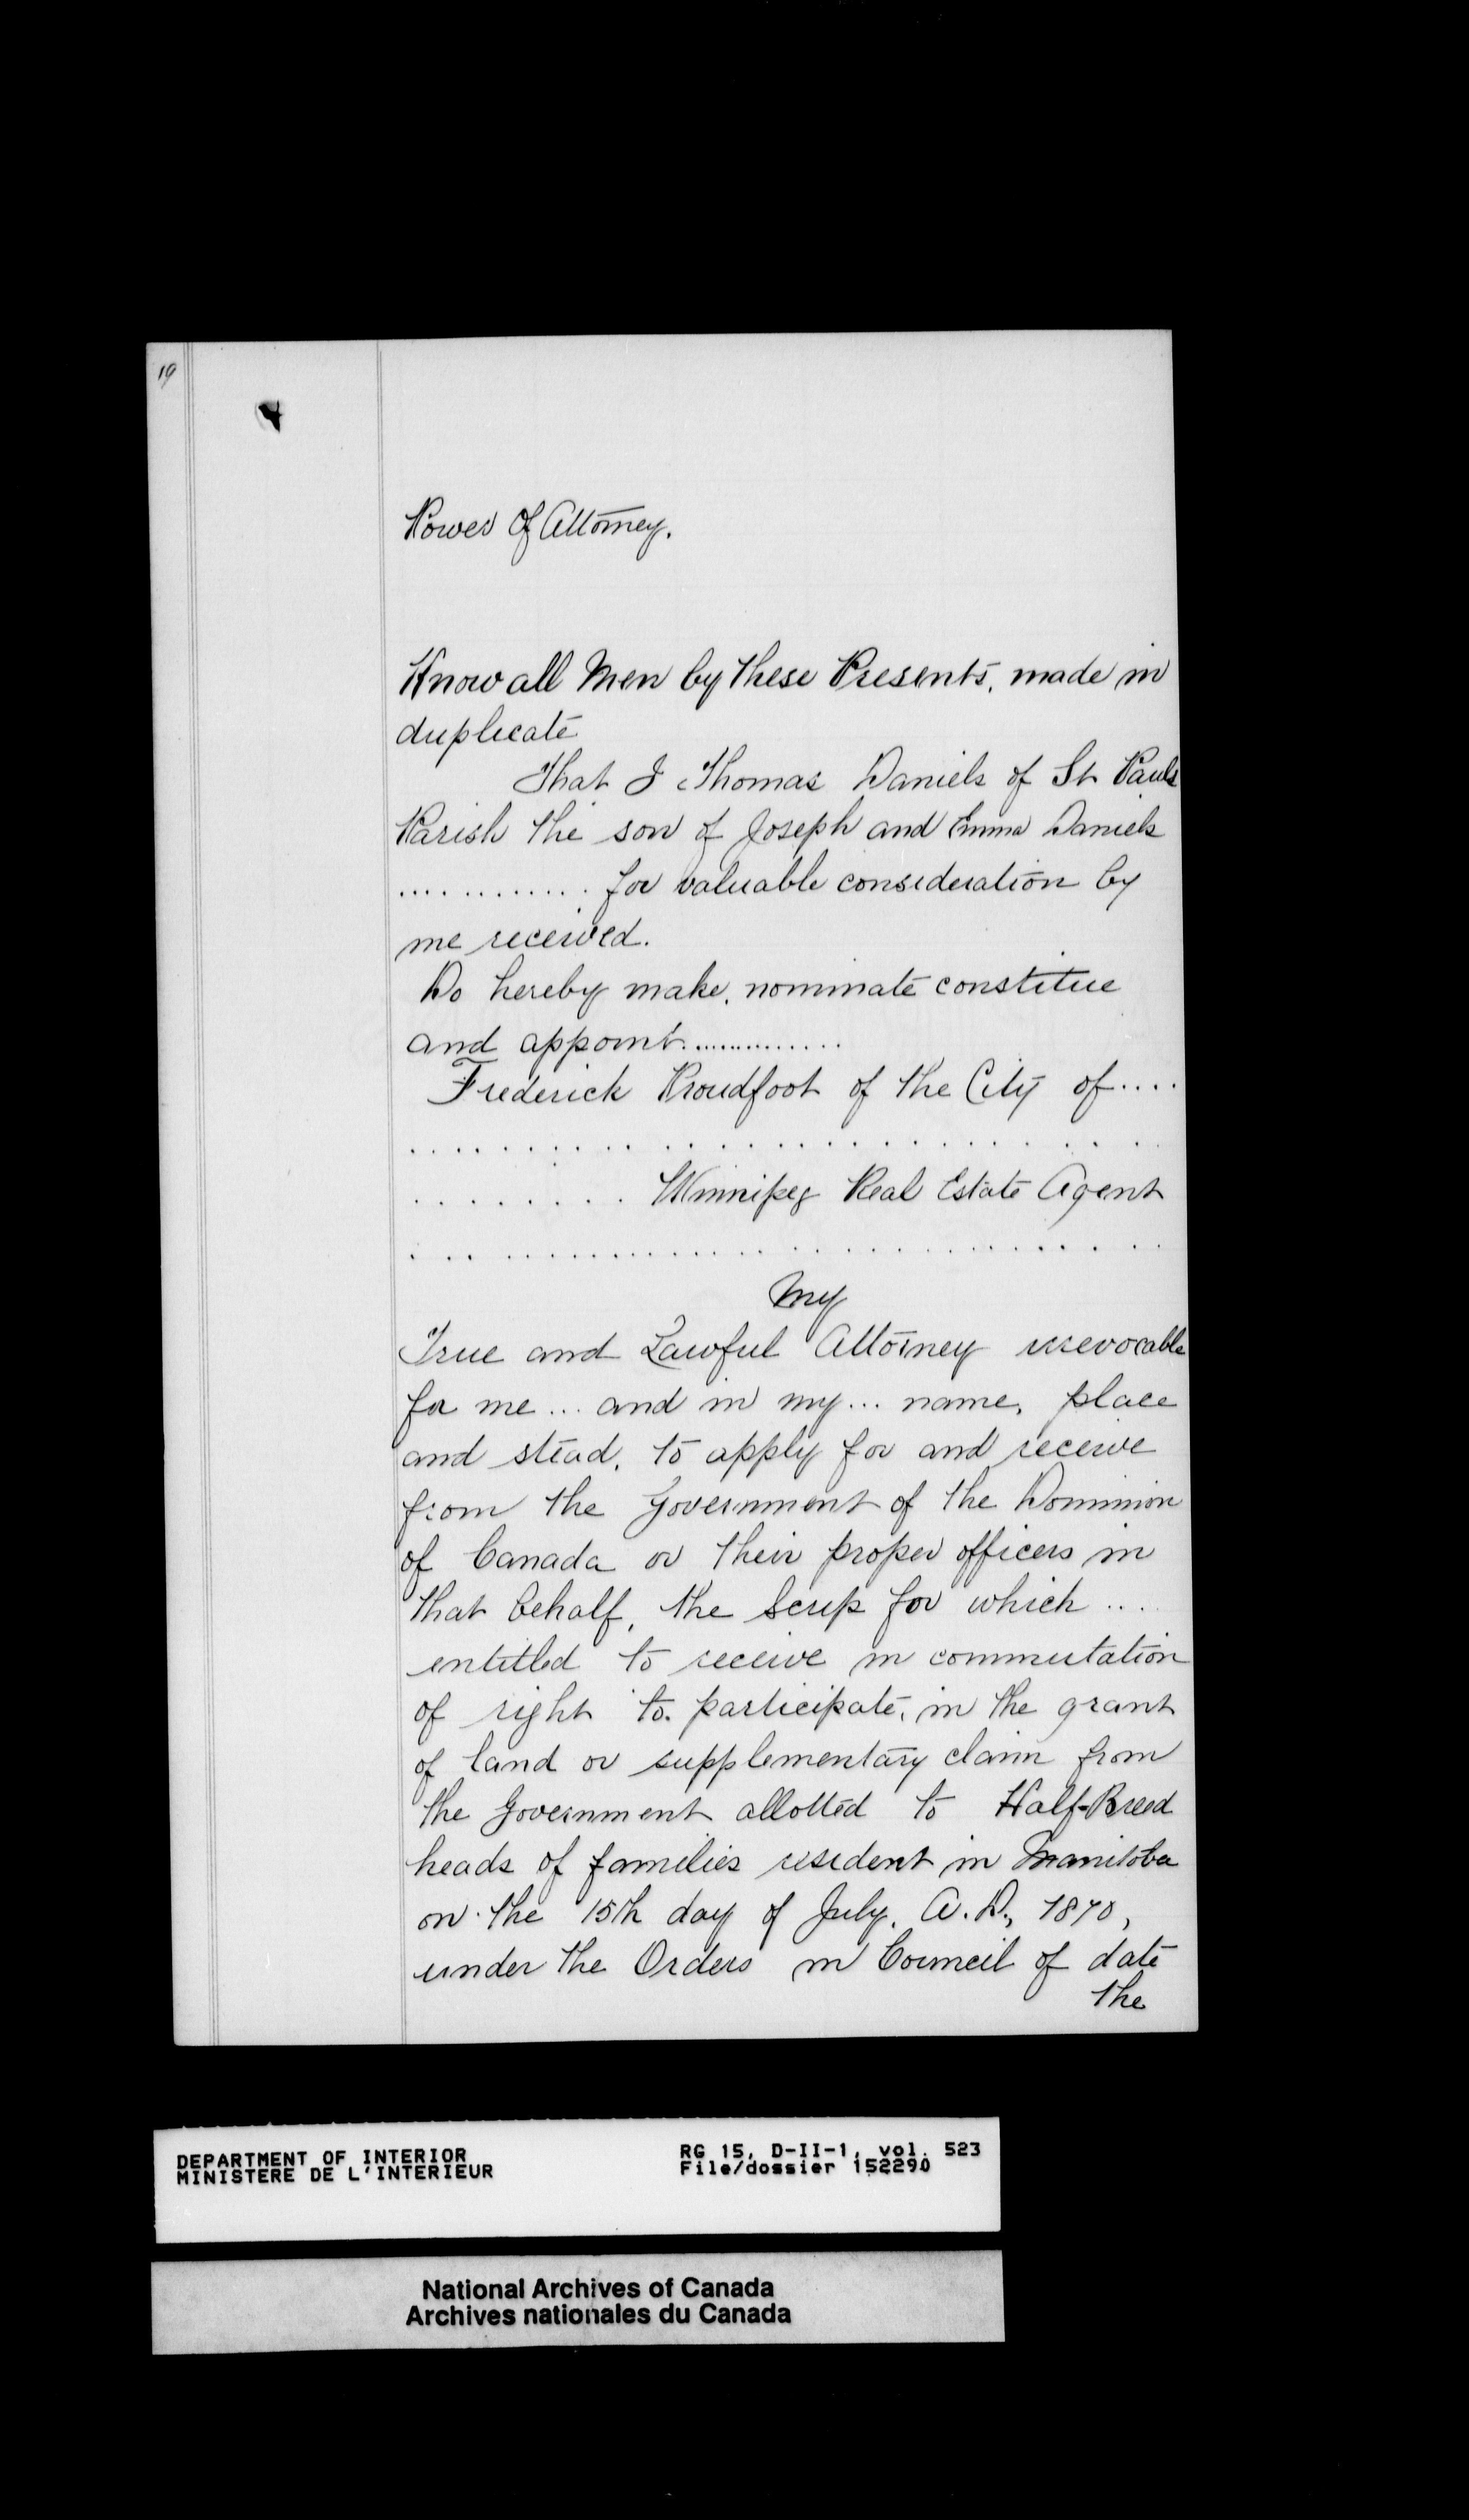 19
Power Of Attorney.
Know all Men by these Presents, made in
duplicate
That I Thomas Daniels of St Pauls
Parish the son of Joseph and Emma Daniels
............. for valuable consideration by
me received.
Do hereby make, nominate constitue
and appoint..............
Frederick Proudfoot of the City of....
. . . . . . . . . . . . . . . . . . . . . . . .
. . . . . . . . Winnipeg Real Estate Agent
. . . . . . . . . . . . . . . . . . . . . . . .
My
True and Lawful Attorney irrevocable
for me... and in my... name, place
and stead, to apply for and receive
from the Government of the Dominion
of Canada or their proper officers in
that behalf, the Scrip for which ...
entitled to receive in commutation
of right to participate, in the grant
of land or supplementary claim from
the Government allotted to Half-Breed
heads of families resident in Manitoba
on the 15th day of July, A.D., 1870,
under the Orders in Council of date
the
DEPARTMENT OF INTERIOR
MINISTERE DE L'INTERIEUR
RG 15, D-II-1, vol. 523
File/dossier 152290
National Archives of Canada
Archives nationales du Canada